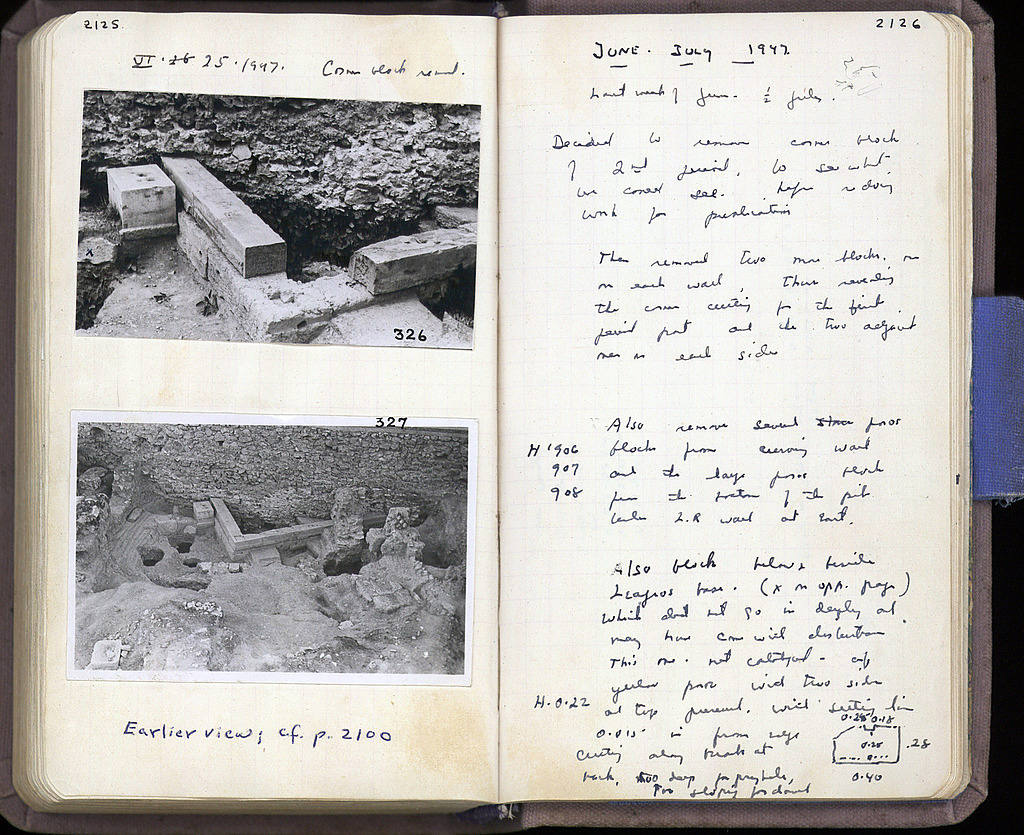 2125
VI · 25 · 1947. Corner block removed.
326
327
Earlier view; cf. p. 2100
2126
JUNE · JULY 1947
Last week of June. ½
Decided to remove corner block
of 2nd period, to see what
we could see. before
work for publication
Then removed two more blocks, on
on each wall, thus revealing
the corner cutting for the first
period post and the two adjacent
on each side
Also remove several poros
H 1906 blocks from curving wall
907 and the large poros block
908 from the bottom of the pit
under L.R wall at East.
Also block below & beside
Leagros base. (x on opp. page)
which does not go in deeply and
may have come with disturbance
This one. not catalogued - of
yellow poros with two sides
H. 0.22 and top preserved. with setting line
0.015 in from edge
0.25 0.18
0.20
.28
0.40
cutting along break at
back, too deep for pry hole,
too sloping for dowel